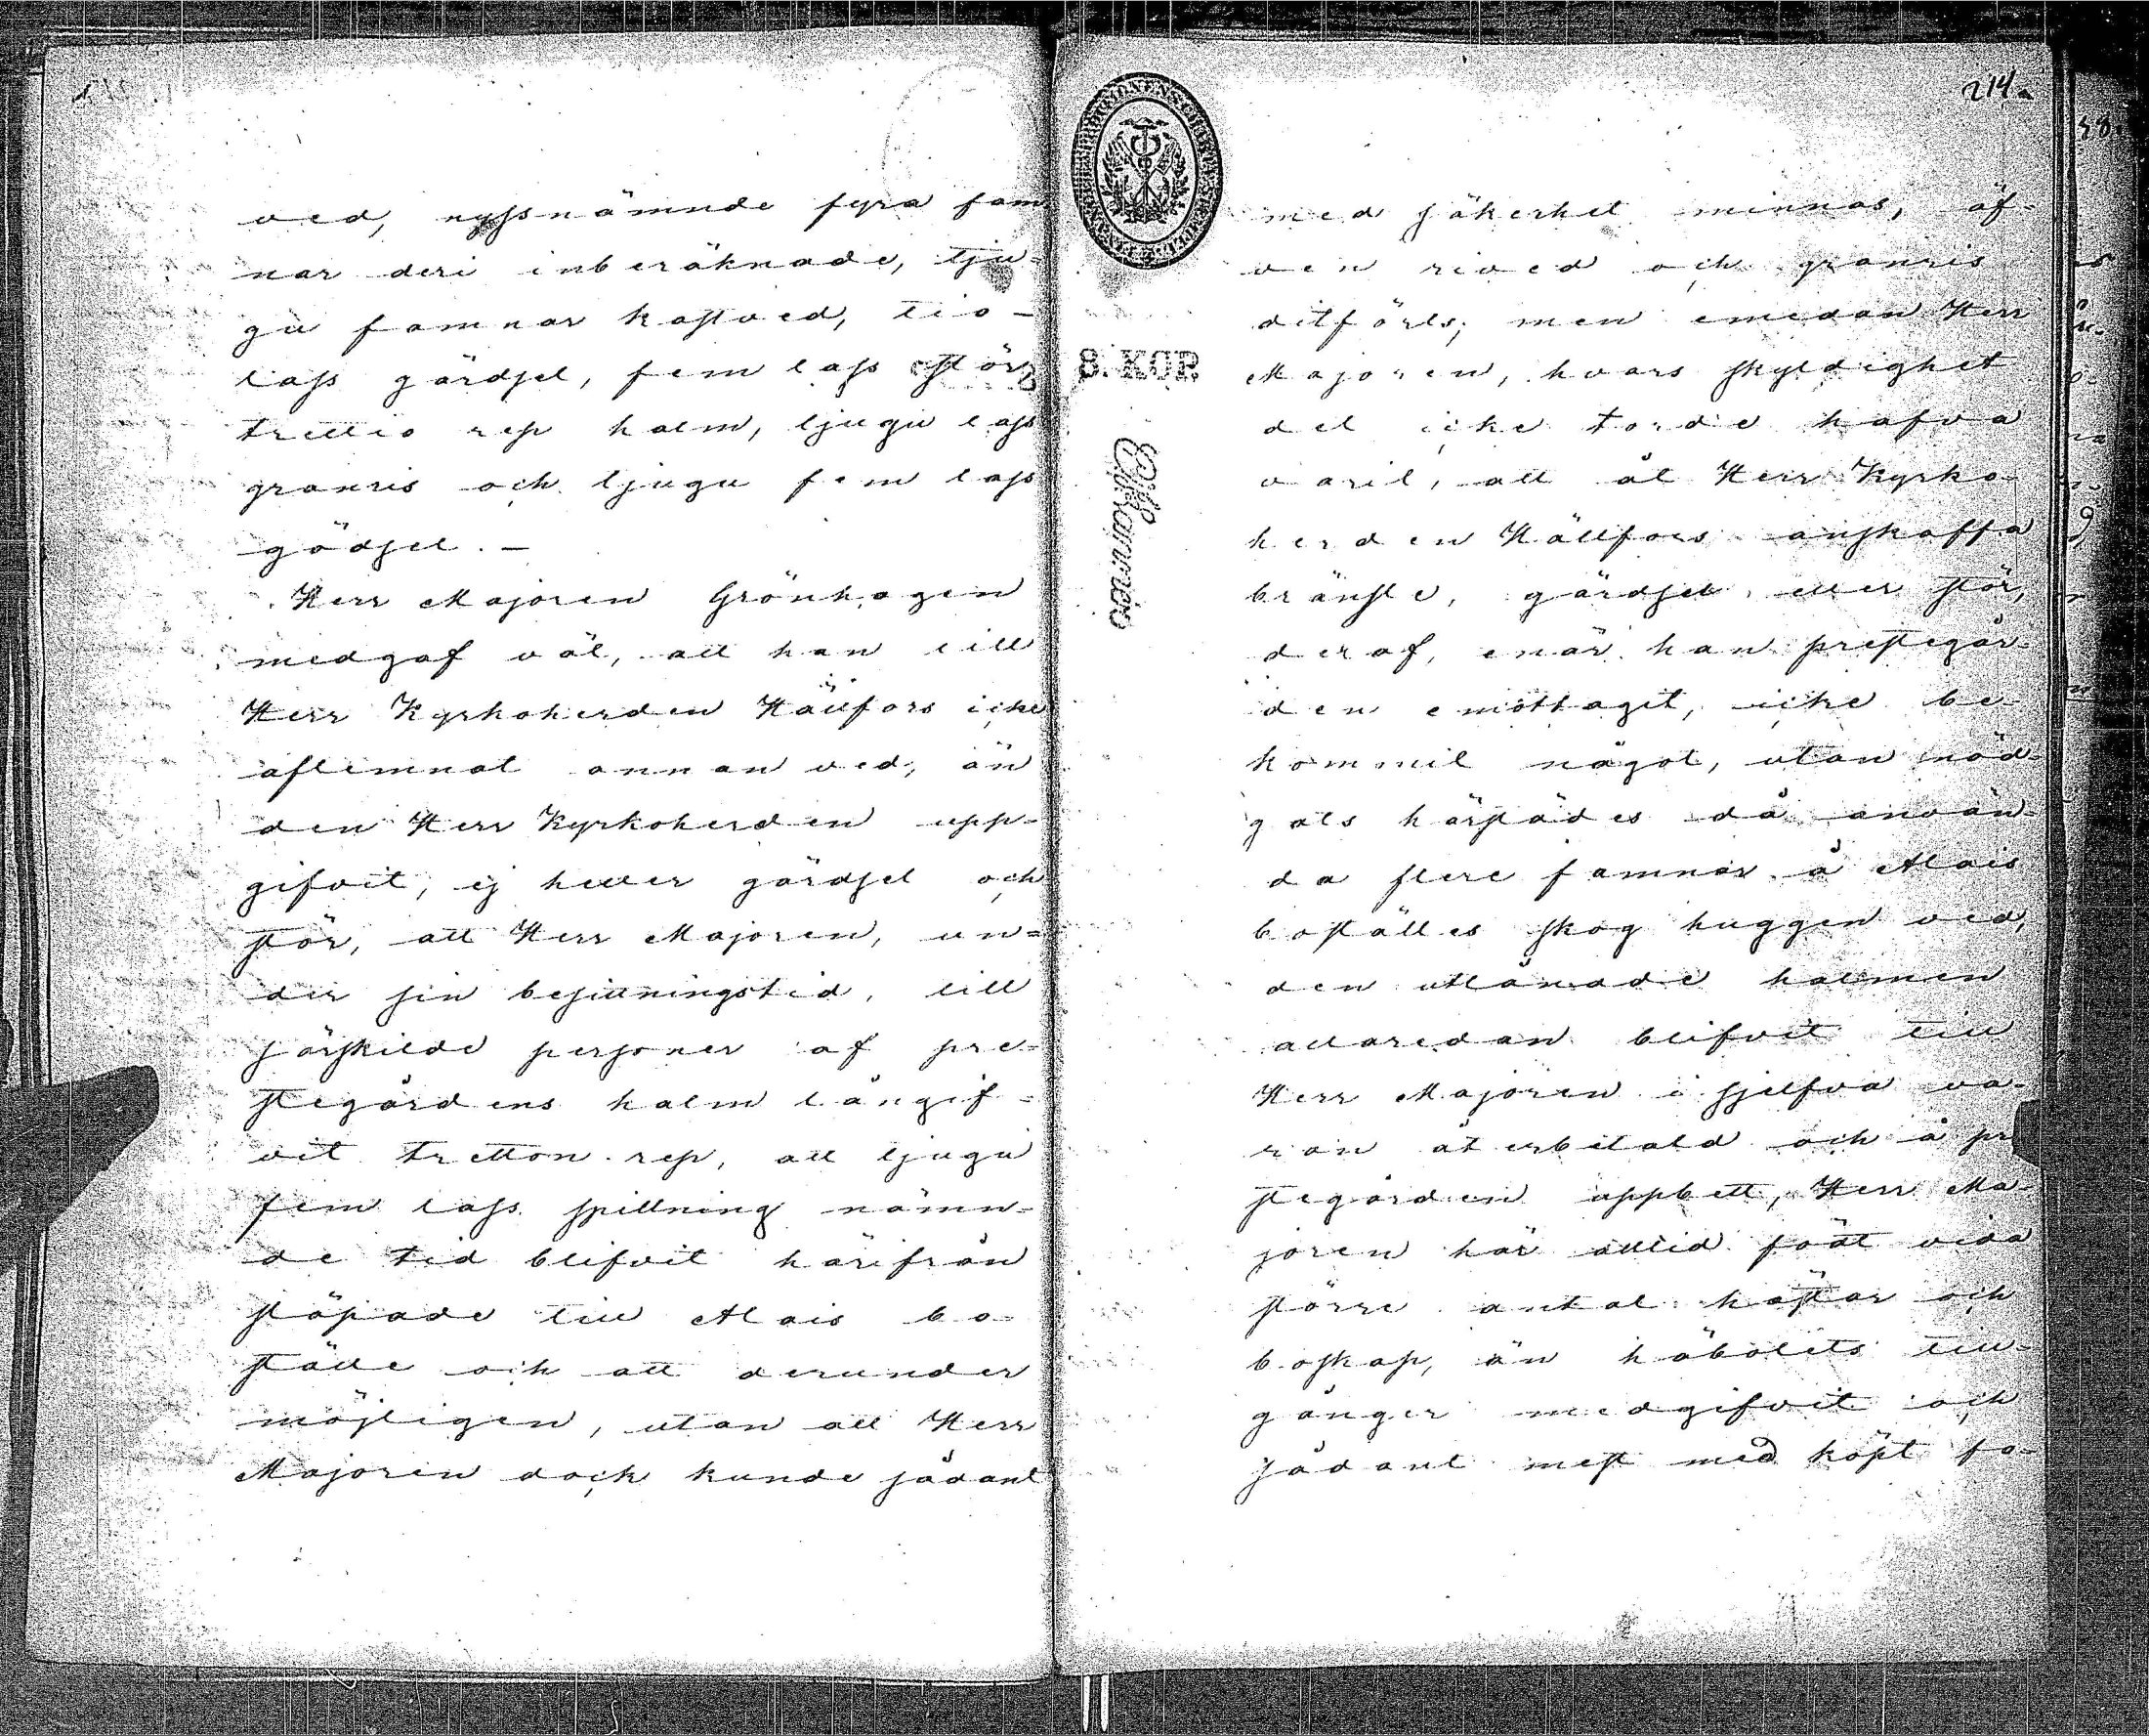 ved, nyssnämnde fyra fam
nar deri inberäknade, tju-
gu famnar kastved, tio
lass gärdsel, fem lass stör,
trettio rep halm, tjugu lass
granris och tjugu fem lass
gödsel. –
Herr Majoren Grönhagen
medgaf väl, att han till
Herr Kyrkoherden Hällfors icke
aflemnat annan ved, än
den Herr Kyrkoherden upp-
gifvit, ej heller gärdsel och
stör, att Herr Majoren, un-
der sin besittningstid, till
särskilde personer af pre-
stegårdens halm långif-
vit tretton rep, att tjugu
fem lass spillning nämn-
de tid blifvit härifrån
släpade till Alais bo-
ställe och att derunder
möjligen, utan att Herr
Majoren dock kunde sådant
214.
8. KOP.
med säkerhet minnas, äf-
ven rived och granris
ditförts; men emedan Herr
Majoren, hvars skyldighet
det icke torde hafva
varit, att åt Herr Kyrko-
herden Hällfors anskaffa
bränsle, gärdsel eller stör,
deraf, enär han prestegår-
den emottagit, icke be-
kommit något, utan nöd-
gats härstädes då använ-
da flere famnar å Alais
boställes skog huggen ved,
den utlånade halmen
allaredan blifvit till
Herr Majoren i sjelfva va-
ran återbetald och å pre
stegården uppbett, Herr Ma-
joren här alltid födt vida
större antal hästar och
boskap, än höbolets till-
gånger medgifvit och
sådant mest med köpt fo-